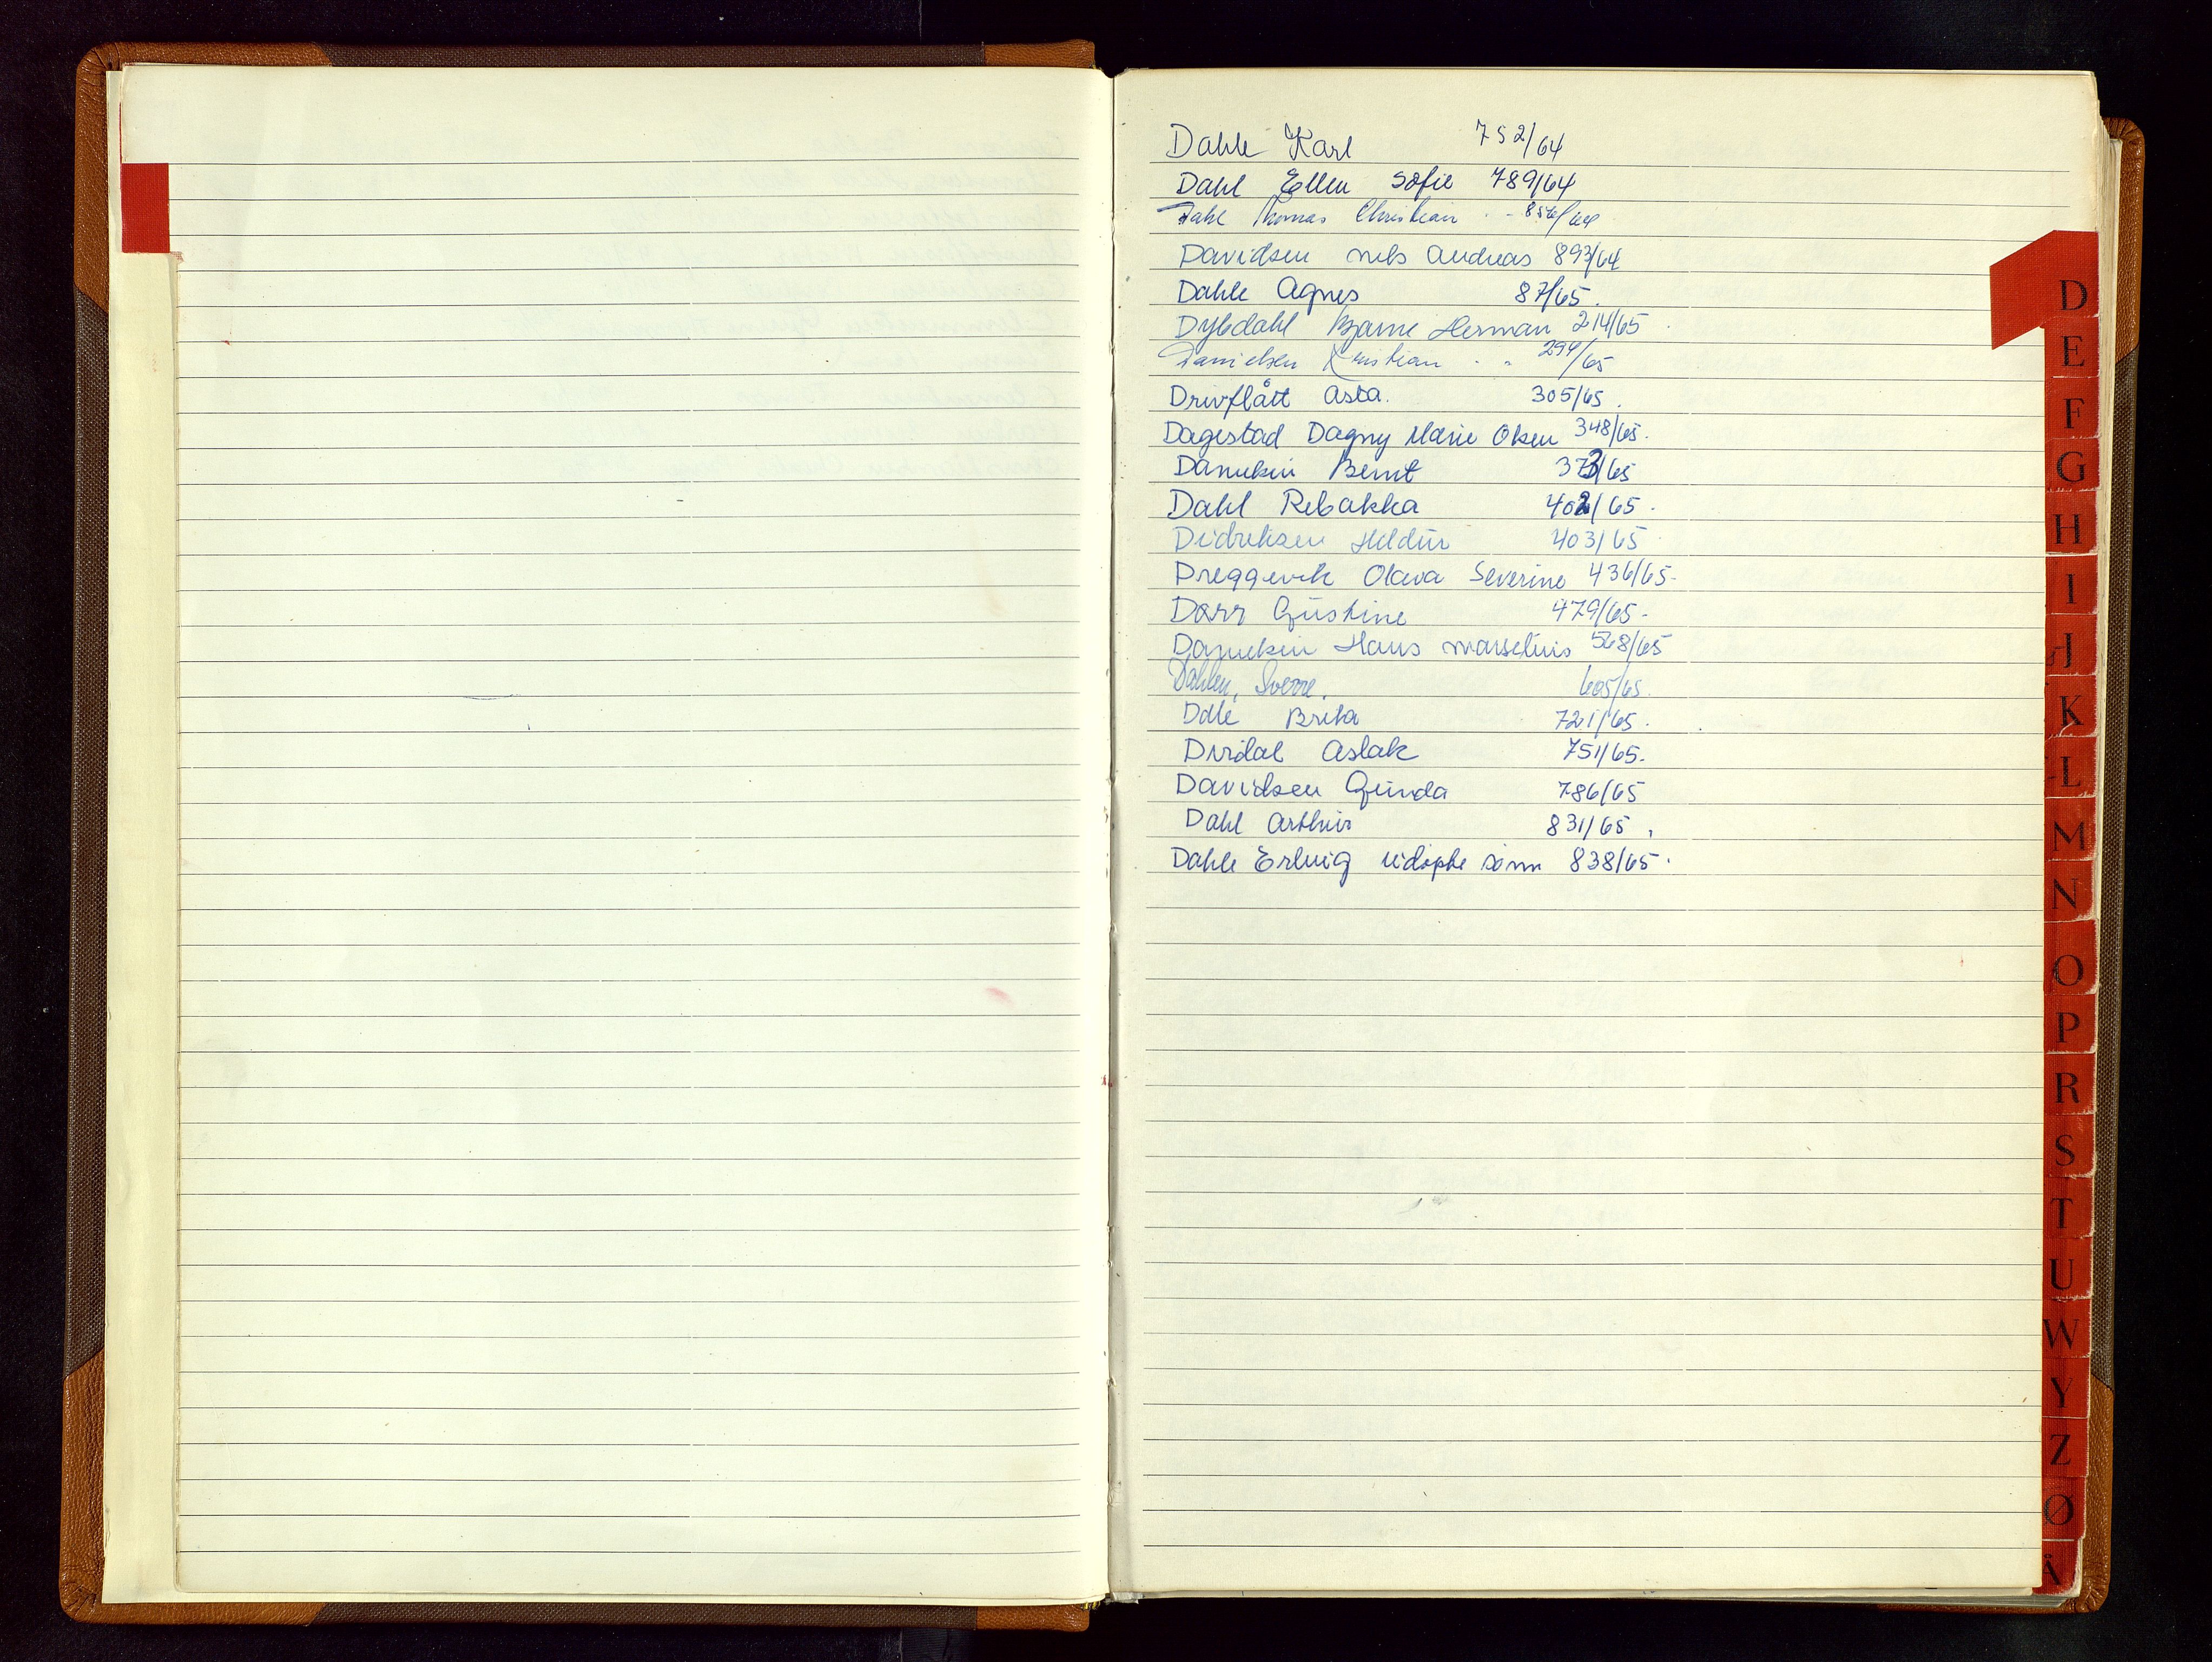 Dahle Karl 752/64
Dahl Ellen Sofie 789/64
Dahl Thomas Christian - 856/64
Davidsen nils Andreas 893/64
Dahle Agnes 87/65.
Dybdahl Bjarne Herman 214/65
Danielsen Kristian - - 294/65
Drivflått Asta. 305/65.
Dagestad Dagny Marie Olsen 348/65.
Danielsen Bernt 373/65
Dahl Rebakka 402/65.
Didriksen Heldur 403/65
Dreggevik Olava Severine 436/65-
Dørr Gustine 479/65-
Danielsen Hans marselius 568/65
Dahlen, Sverre. 605/65.
Dale Brita 721/65.
Dirdal Aslak 751/65.
Davidsen Gunda 786/65
Dahl Arthur 831/65.
Dahle Erling udøpte sønn 838/65.
D
E
F
G
H
I
J
K
L
M
N
O
P
R
S
T
U
W
Y
Z
Ø
Å